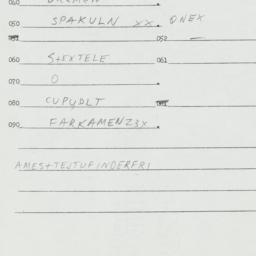 040
050 SPAKULN XX. QNEX
052
060 S+EXTELE 061
070 O
080 CUPYDLT
090 FARKAMENZ3X
AMES+TEJTUFINDERFRI